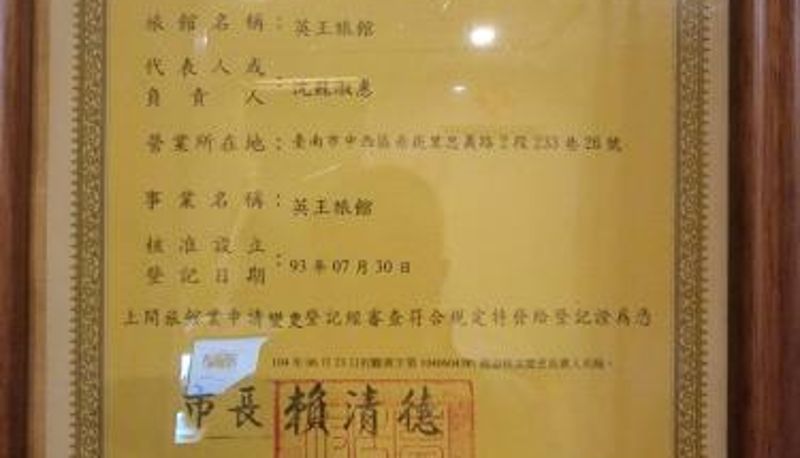 旅館名稱：英王旅館
代表人或
負責人：沈蘇淑惠
營業所在地：臺南市中西區赤嵌里忠義路2段233巷26號
事業名稱：英王旅館
核准設立
登記日期：93年07月30日
上開旅館業申請變更登記經審查符合規定特發給登記證為憑
市長賴清德